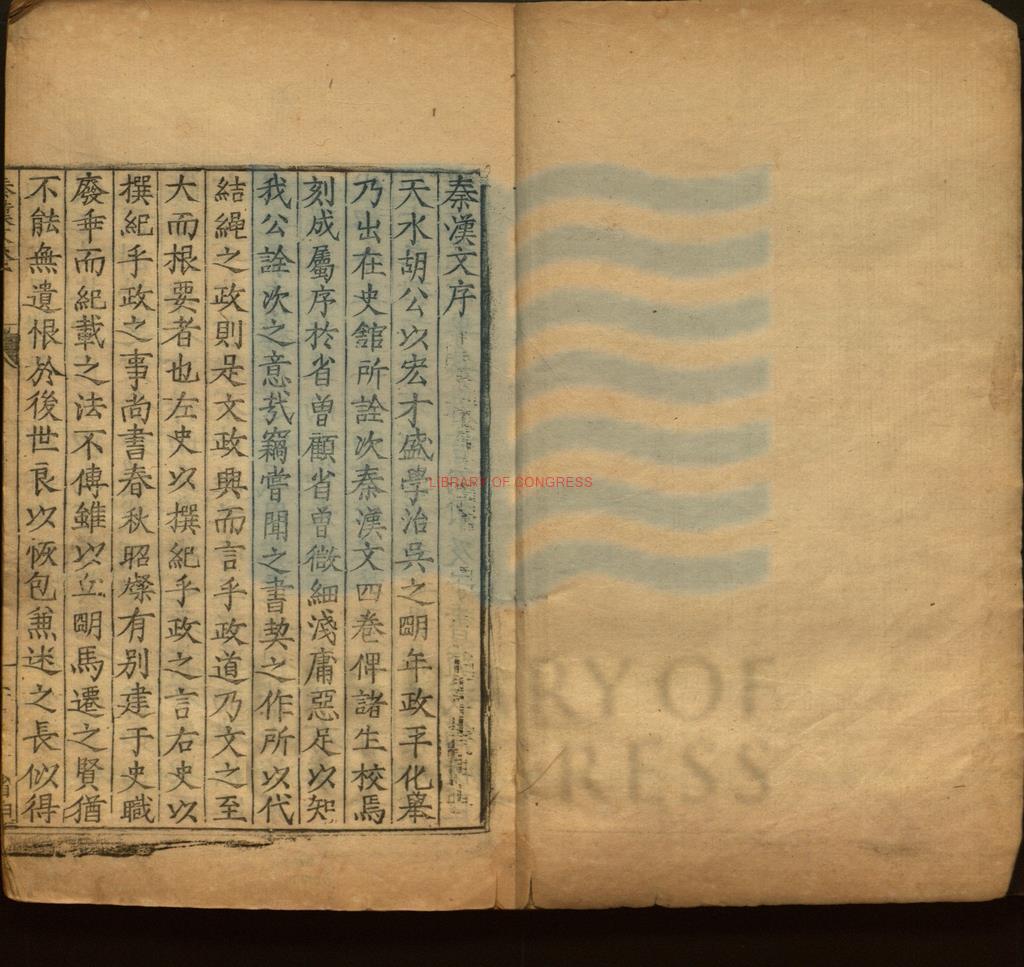 秦漢文序
天水胡公以宏才盛學治吳之明年政平化舉
乃出在史舘所詮次秦漢文四卷俾諸生校焉
刻成屬序於省曽顧省曽微細淺庸惡足以知
我公詮次之意㦲竊嘗聞之書契之作所以代
結繩之政則是文政興而言乎政道乃文之至
大而根要者也左史以撰紀乎政之言右史以
撰紀乎政之事尚書春秋昭燦有别建于史職
廢乖而紀載之法不傳雖以丘明馬遷之賢猶
不能無遺恨於後世良以恢包兼迷之長似得
LIBRARY OF CONGRESS
RY OF
RESS